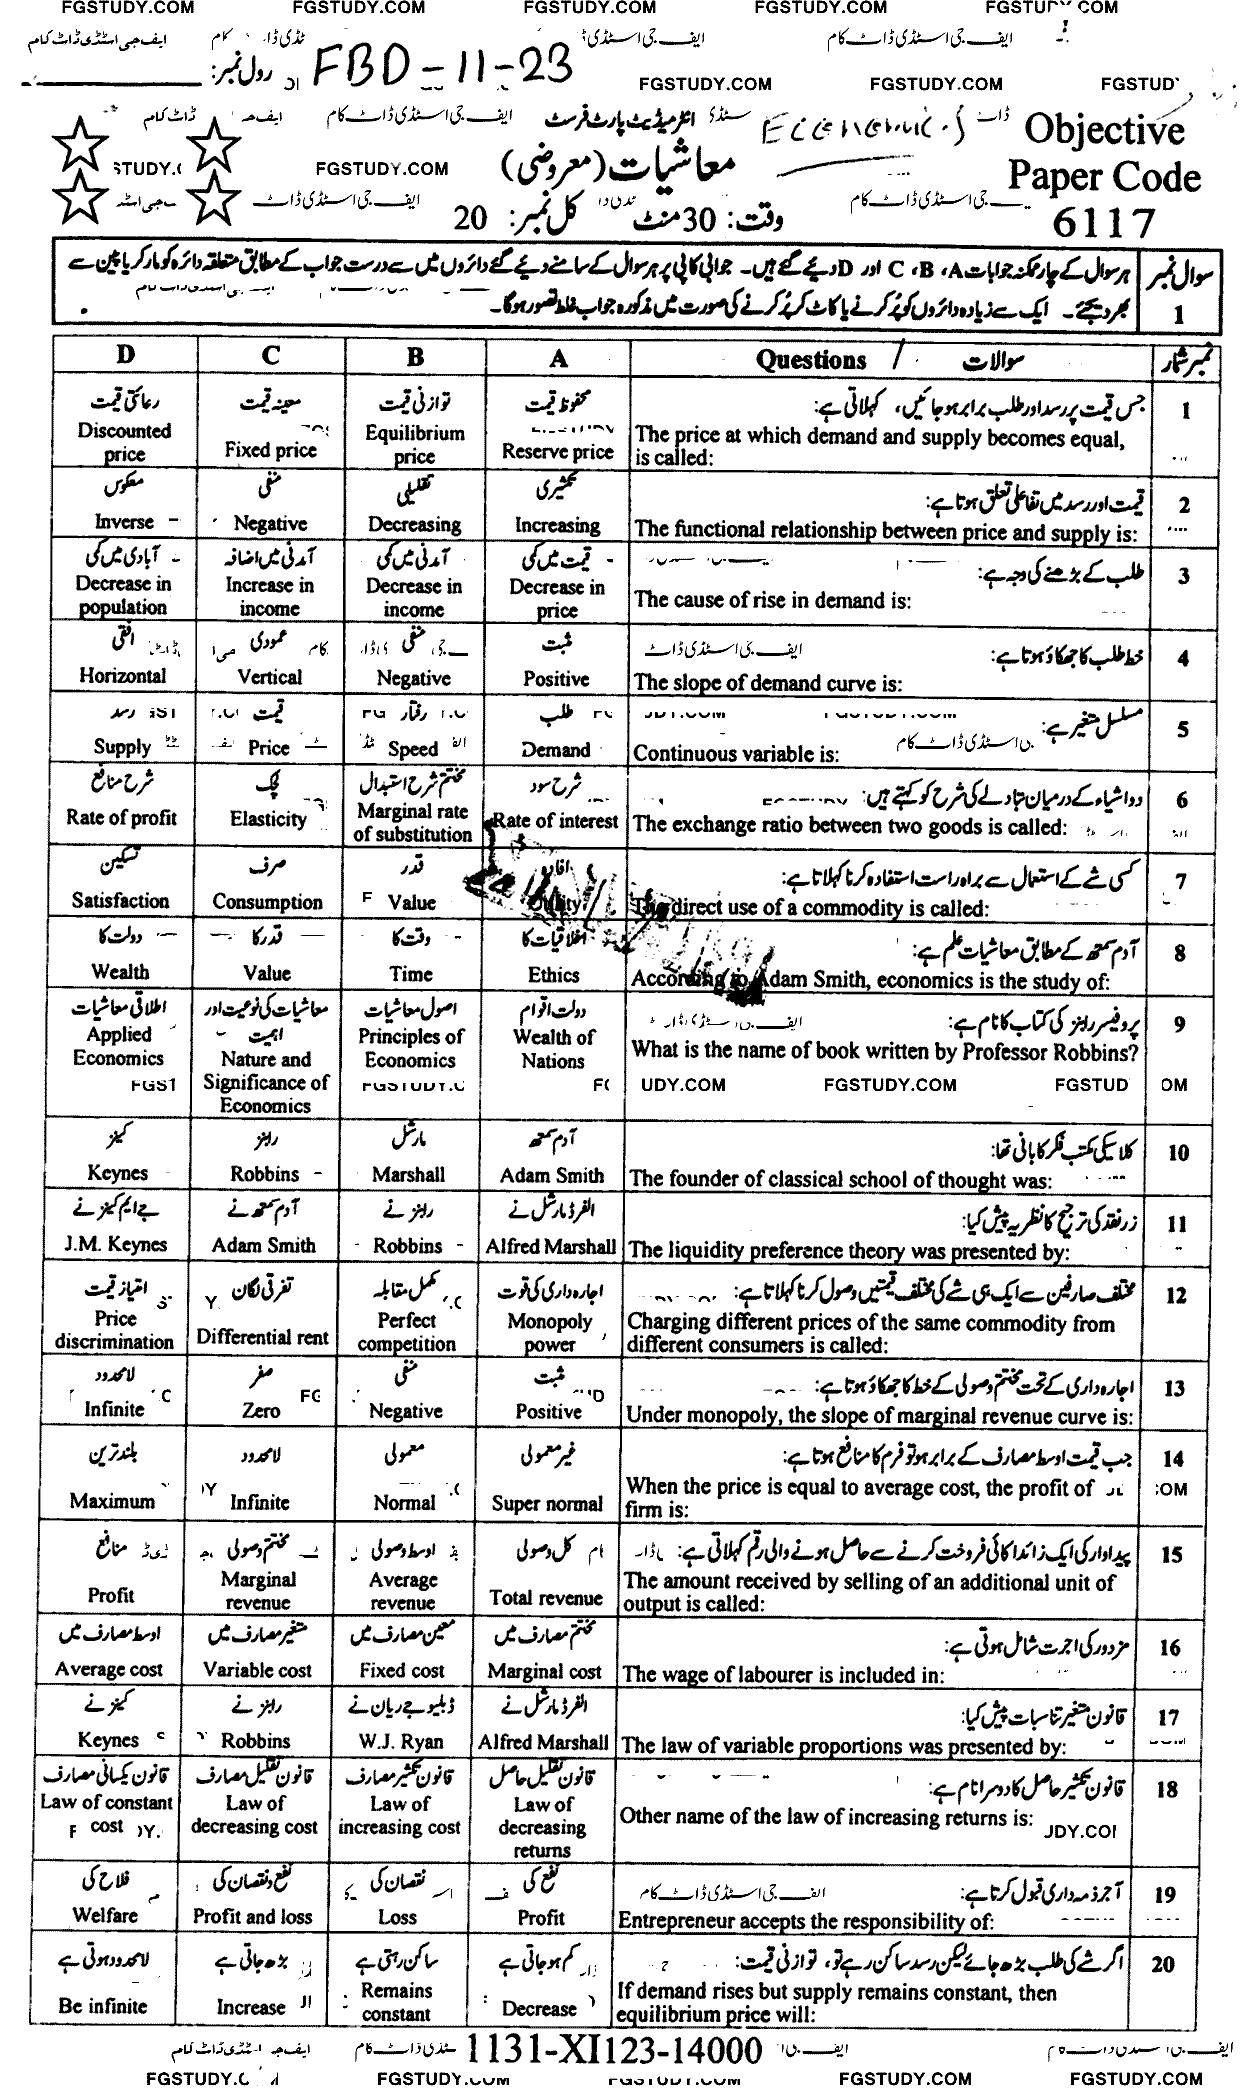 FGSTUDY.COM FGSTUDY.COM FGSTUDY.COM FGSTUDY.COM FGSTUDY.COM
ایف جی اسٹڈی ڈاٹ کام ایف جی اسٹڈی ایف جی اسٹڈی ڈاٹ کام
رول نمبر: FBD-11-23
FGSTUDY.COM FGSTUDY.COM FGSTUD
انٹرمیڈیٹ پارٹ فرسٹ
Objective
معاشیات (معروضی)
FGSTUDY.COM
Paper Code
وقت: 30 منٹ کل نمبر: 20
6117
سوال نمبر 1
ہر سوال کے چار ممکنہ جوابات A، B، C اور D دیئے گئے ہیں۔ جوابی کاپی پر ہر سوال کے سامنے دیئے گئے دائروں میں سے درست جواب کے مطابق متعلقہ دائرہ کو مارکر یا پین سے
بھر دیجئے۔ ایک سے زیادہ دائروں کو پُر کرنے یا کاٹ کر پُر کرنے کی صورت میں مذکورہ جواب غلط تصور ہوگا۔
D C B A Questions / سوالات نمبر شمار
1 جس قیمت پر رسد اور طلب برابر ہو جائیں، کہلاتی ہے:
The price at which demand and supply becomes equal,
is called:
محفوظ قیمت Reserve price
توازنی قیمت Equilibrium price
معینہ قیمت Fixed price
رعائتی قیمت Discounted price
2 قیمت اور رسد میں تفاعلی تعلق ہوتا ہے:
The functional relationship between price and supply is:
تکثیری Increasing
تقلیلی Decreasing
منفی Negative
معکوس Inverse
3 طلب کے بڑھنے کی وجہ ہے:
The cause of rise in demand is:
قیمت میں کمی Decrease in price
آمدنی میں کمی Decrease in income
آمدنی میں اضافہ Increase in income
آبادی میں کمی Decrease in population
4 خط طلب کا جھکاؤ ہوتا ہے:
The slope of demand curve is:
مثبت Positive
منفی Negative
عمودی Vertical
افقی Horizontal
5 مسلسل متغیر ہے:
Continuous variable is:
طلب Demand
رفتار Speed
قیمت Price
رسد Supply
6 دو اشیاء کے درمیان تبادلے کی شرح کو کہتے ہیں:
The exchange ratio between two goods is called:
شرح سود Rate of interest
مختتم شرح استبدال Marginal rate of substitution
لچک Elasticity
شرح منافع Rate of profit
7 کسی شے کے استعمال سے براہ راست استفادہ کرنا کہلاتا ہے:
The direct use of a commodity is called:
Utility
قدر Value
صرف Consumption
تسکین Satisfaction
8 آدم سمتھ کے مطابق معاشیات علم ہے:
According to Adam Smith, economics is the study of:
اخلاقیات کا Ethics
وقت کا Time
قدر کا Value
دولت کا Wealth
9 پروفیسر رابنز کی کتاب کا نام ہے:
What is the name of book written by Professor Robbins?
دولت اقوام Wealth of Nations
اصول معاشیات Principles of Economics
معاشیات کی نوعیت اور اہمیت Nature and Significance of Economics
اطلاقی معاشیات Applied Economics
UDY.COM FGSTUDY.COM FGSTUD
10 کلاسیکی مکتب فکر کا بانی تھا:
The founder of classical school of thought was:
آدم سمتھ Adam Smith
مارشل Marshall
رابنز Robbins
کینز Keynes
11 زر نقد کی ترجیح کا نظریہ پیش کیا:
The liquidity preference theory was presented by:
الفرڈ مارشل نے Alfred Marshall
رابنز نے Robbins
آدم سمتھ نے Adam Smith
جے ایم کینز نے J.M. Keynes
12 مختلف صارفین سے ایک ہی شے کی مختلف قیمتیں وصول کرنا کہلاتا ہے:
Charging different prices of the same commodity from
different consumers is called:
اجارہ داری کی قوت Monopoly power
مکمل مقابلہ Perfect competition
تفرقی لگان Differential rent
امتیاز قیمت Price discrimination
13 اجارہ داری کے تحت مختتم وصولی کے خط کا جھکاؤ ہوتا ہے:
Under monopoly, the slope of marginal revenue curve is:
مثبت Positive
منفی Negative
صفر Zero
لامحدود Infinite
14 جب قیمت اوسط مصارف کے برابر ہو تو فرم کا منافع ہوتا ہے:
When the price is equal to average cost, the profit of
firm is:
غیر معمولی Super normal
معمولی Normal
لامحدود Infinite
بلند ترین Maximum
15 پیداوار کی ایک زائد اکائی فروخت کرنے سے حاصل ہونے والی رقم کہلاتی ہے:
The amount received by selling of an additional unit of
output is called:
کل وصولی Total revenue
اوسط وصولی Average revenue
مختتم وصولی Marginal revenue
منافع Profit
16 مزدور کی اجرت شامل ہوتی ہے:
The wage of labourer is included in:
مختتم مصارف میں Marginal cost
معین مصارف میں Fixed cost
متغیر مصارف میں Variable cost
اوسط مصارف میں Average cost
17 قانون متغیر تناسبات پیش کیا:
The law of variable proportions was presented by:
الفرڈ مارشل نے Alfred Marshall
ڈبلیو جے ریان نے W.J. Ryan
رابنز نے Robbins
کینز نے Keynes
18 قانون تکثیر حاصل کا دوسرا نام ہے:
Other name of the law of increasing returns is:
قانون تقلیل حاصل Law of decreasing returns
قانون تکثیر مصارف Law of increasing cost
قانون تقلیل مصارف Law of decreasing cost
قانون یکسانی مصارف Law of constant cost
19 آجر ذمہ داری قبول کرتا ہے:
Entrepreneur accepts the responsibility of:
نفع کی Profit
نقصان کی Loss
نفع و نقصان کی Profit and loss
فلاح کی Welfare
20 اگر شے کی طلب بڑھ جائے لیکن رسد ساکن رہے تو، توازنی قیمت:
If demand rises but supply remains constant, then
equilibrium price will:
کم ہو جاتی ہے Decrease
ساکن رہتی ہے Remains constant
بڑھ جاتی ہے Increase
لامحدود ہوتی ہے Be infinite
1131-XI123-14000
FGSTUDY.COM FGSTUDY.COM FGSTUDY.COM